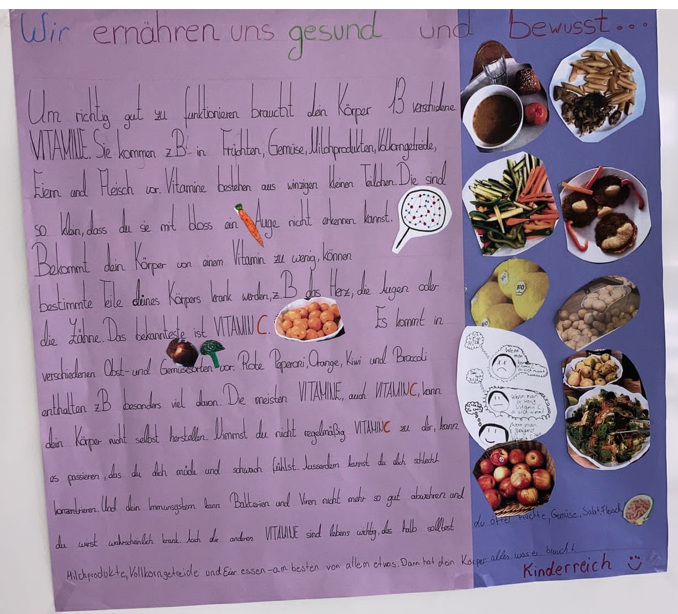 Wir ernähren uns gesund und bewusst...
Um richtig gut zu funktionieren braucht dein Körper 13 verschidene
VITAMINE. Sie kommen z.B in Früchten, Gemüse, Milchprodukten, Vollkorngetreide,
Eiern und Fleisch vor. Vitamine bestehen aus winzigen kleinen Teilchen. Die sind
so klein, dass du sie mit bloss ein Auge nicht erkennen kannst.
Bekommt dein Körper von einem Vitamin zu wenig, können
bestimmte Teile deines Körpers krank werden, z.B das Herz, die Augen oder
die Zähne. Das bekannteste ist VITAMIN C. Es kommt in
verschiedenen Obst- und Gemüsesorten vor. Rote Peperoni, Orange, Kiwi und Broccoli
enthalten z.B besonders viel davon. Die meisten VITAMINE, auch VITAMIN C, kann
dein Körper nicht selbst herstellen. Nimmst du nicht regelmäßig VITAMIN C zu dir, kann
es passieren, das du dich müde und schwach fühlst. Ausserdem kannst du dich schlecht
konzentrieren. Und dein Immunsystem kann Bakterien und Viren nicht mehr so gut abwehren und
du wirst wahrscheinlich krank. Auch die anderen VITAMINE sind lebens wichtig des halb solltest
du öfter Früchte, Gemüse, Salat,
Milchprodukte, Vollkorngetreide und Eier essen - am besten von allem etwas. Dann hat dein Körper alles was er braucht.
Kinderreich